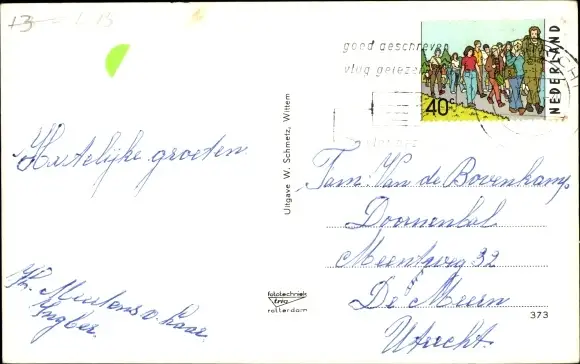 13
goed geschreven
vlug gelezen
40c
NEDERLAND
Hartelijke groeten
Uitgave W. Schmetz, Wittem
Fam. Van de Bovenkamp
Doornenbal
Meentweg 32
De Meern
Utrecht.
Th. Meertens v. Laar
Yngber.
fototechniek
rotterdam
373